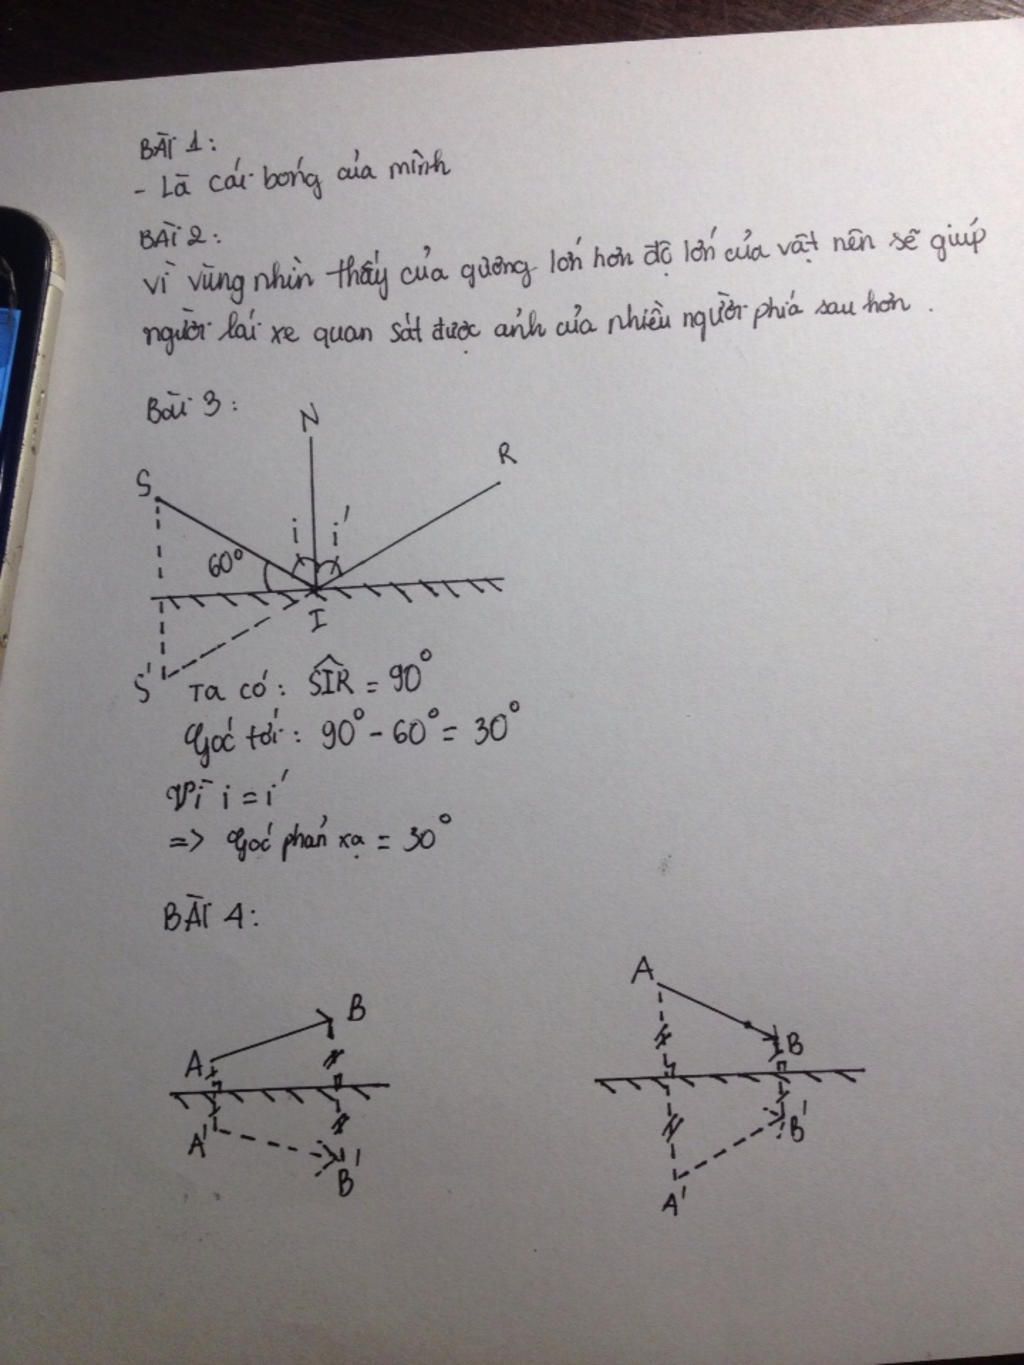 BÀI 1:
- Là cái bóng của mình
BÀI 2:
vì vùng nhìn thấy của gương lớn hơn độ lớn của vật nên sẽ giúp
người lái xe quan sát được ảnh của nhiều người phía sau hơn.
Bài 3:
N
S
R
i i'
60°
I
S'
Ta có: SIR = 90°
Góc tới: 90° - 60° = 30°
Vì i = i'
=> Góc phản xạ = 30°
BÀI 4:
A B
A' B'
A B
A' B'